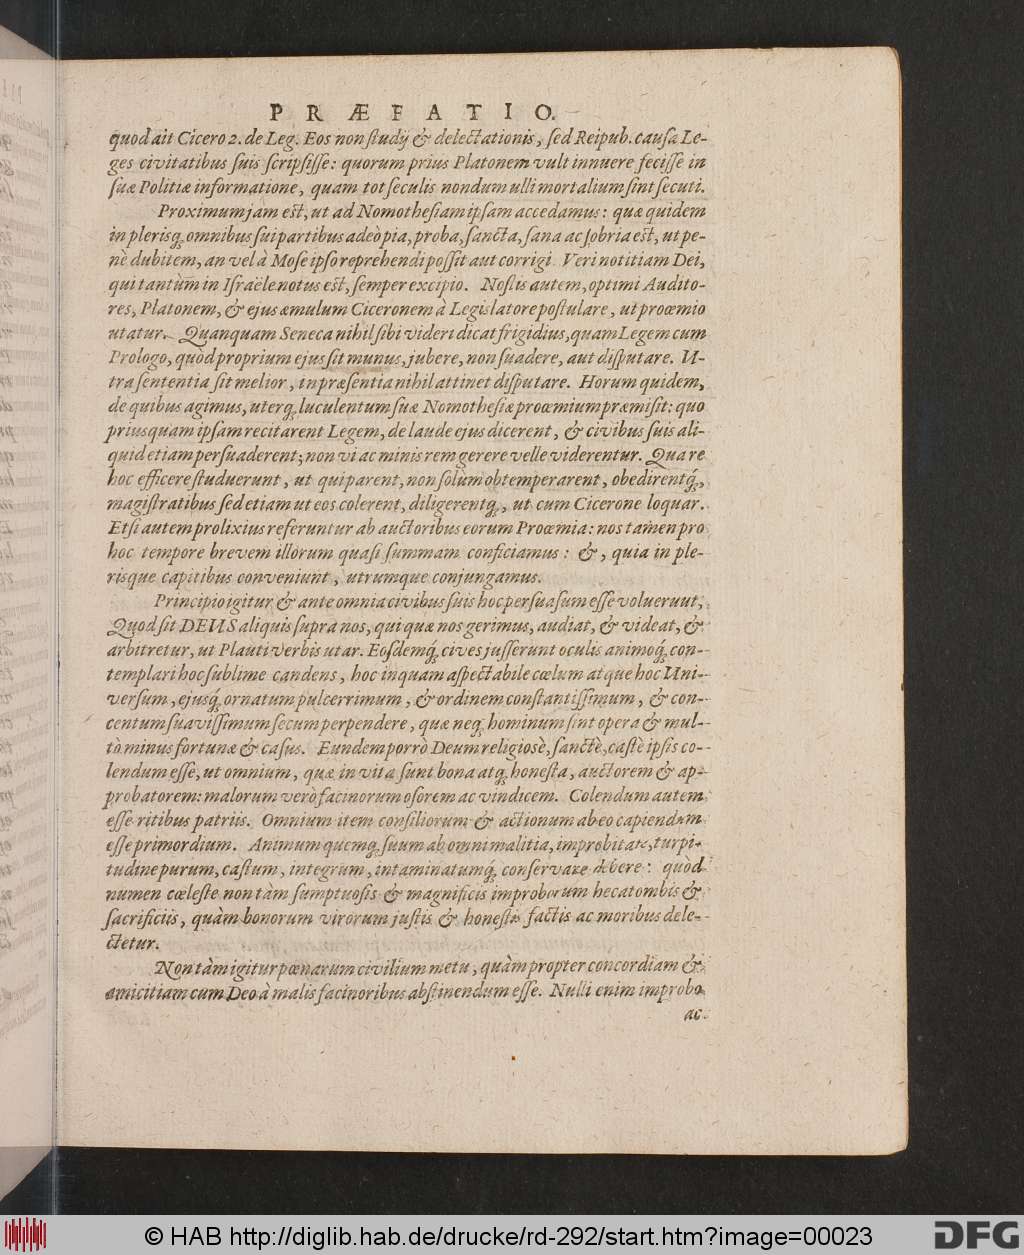 PRÆFATIO.
quod ait Cicero 2. de Leg. Eos non studij & delectationis, sed Reipub. causa Le-
ges civitatibus suis scripsisse: quorum prius Platonem vult innuere fecisse in
suæ Politiæ informatione, quam tot seculis nondum ulli mortalium sint secuti.
Proximum jam est, ut ad Nomothesiam ipsam accedamus: quæ quidem
in plerisq; omnibus sui partibus adeò pia, proba, sancta, sana ac sobria est, ut pe-
nè dubitem, an vel à Mose ipso reprehendi possit aut corrigi. Veri notitiam Dei,
qui tantùm in Israële notus est, semper excipio. Nostis autem, optimi Audito-
res, Platonem, & ejus æmulum Ciceronem à Legislatore postulare, ut proœmio
utatur. Quanquam Seneca nihil sibi videri dicat frigidius, quam Legem cum
Prologo, quòd proprium ejus sit munus, jubere, non suadere, aut disputare. U-
tra sententia sit melior, in præsentia nihil attinet disputare. Horum quidem,
de quibus agimus, uterq; luculentum suæ Nomothesiæ proœmium præmisit: quo
priusquam ipsam recitarent Legem, de laude ejus dicerent, & civibus suis ali-
quid etiam persuaderent; non vi ac minis rem gerere velle viderentur. Qua re
hoc efficere studuerunt, ut qui parent, non solùm obtemperarent, obedirentq;,
magistratibus sed etiam ut eos colerent, diligerentq;, ut cum Cicerone loquar.
Etsi autem prolixius referuntur ab auctoribus eorum Proœmia: nos tamen pro
hoc tempore brevem illorum quasi summam conficiamus: &, quia in ple-
risque capitibus conveniunt, utrumque conjungamus.
Principio igitur & ante omnia civibus suis hoc persuasum esse voluerunt,
Quod sit DEUS aliquis supra nos, qui quæ nos gerimus, audiat, & videat, &
arbitretur, ut Plauti verbis utar. Eosdemq́; cives jusserunt oculis animoq; con-
templari hoc sublime candens, hoc inquam aspectabile cœlum atque hoc Uni-
versum, ejusq́; ornatum pulcerrimum, & ordinem constantissimum, & con-
centum suavissimum secum perpendere, quæ neq; hominum sint opera & mul-
tò minus fortunæ & casus. Eundem porrò Deum religiosè, sanctè, castè ipsis co-
lendum esse, ut omnium, quæ in vita sunt bona atq; honesta, auctorem & ap-
probatorem: malorum verò facinorum osorem ac vindicem. Colendum autem
esse ritibus patriis. Omnium item consiliorum & actionum ab eo capiendum
esse primordium. Animum quemq; suum ab omni malitia, improbitate, turpi-
tudine purum, castum, integrum, intaminatumq́; conservare debere: quòd
numen cœleste non tàm sumptuosis & magnificis improborum hecatombis &
sacrificiis, quàm bonorum virorum justis & honestis factis ac moribus dele-
ctetur.
Non tàm igitur pœnarum civilium metu, quàm propter concordiam &
amicitiam cum Deo à malis facinoribus abstinendum esse. Nulli enim improbo
ac
© HAB http://diglib.hab.de/drucke/rd-292/start.htm?image=00023
DFG